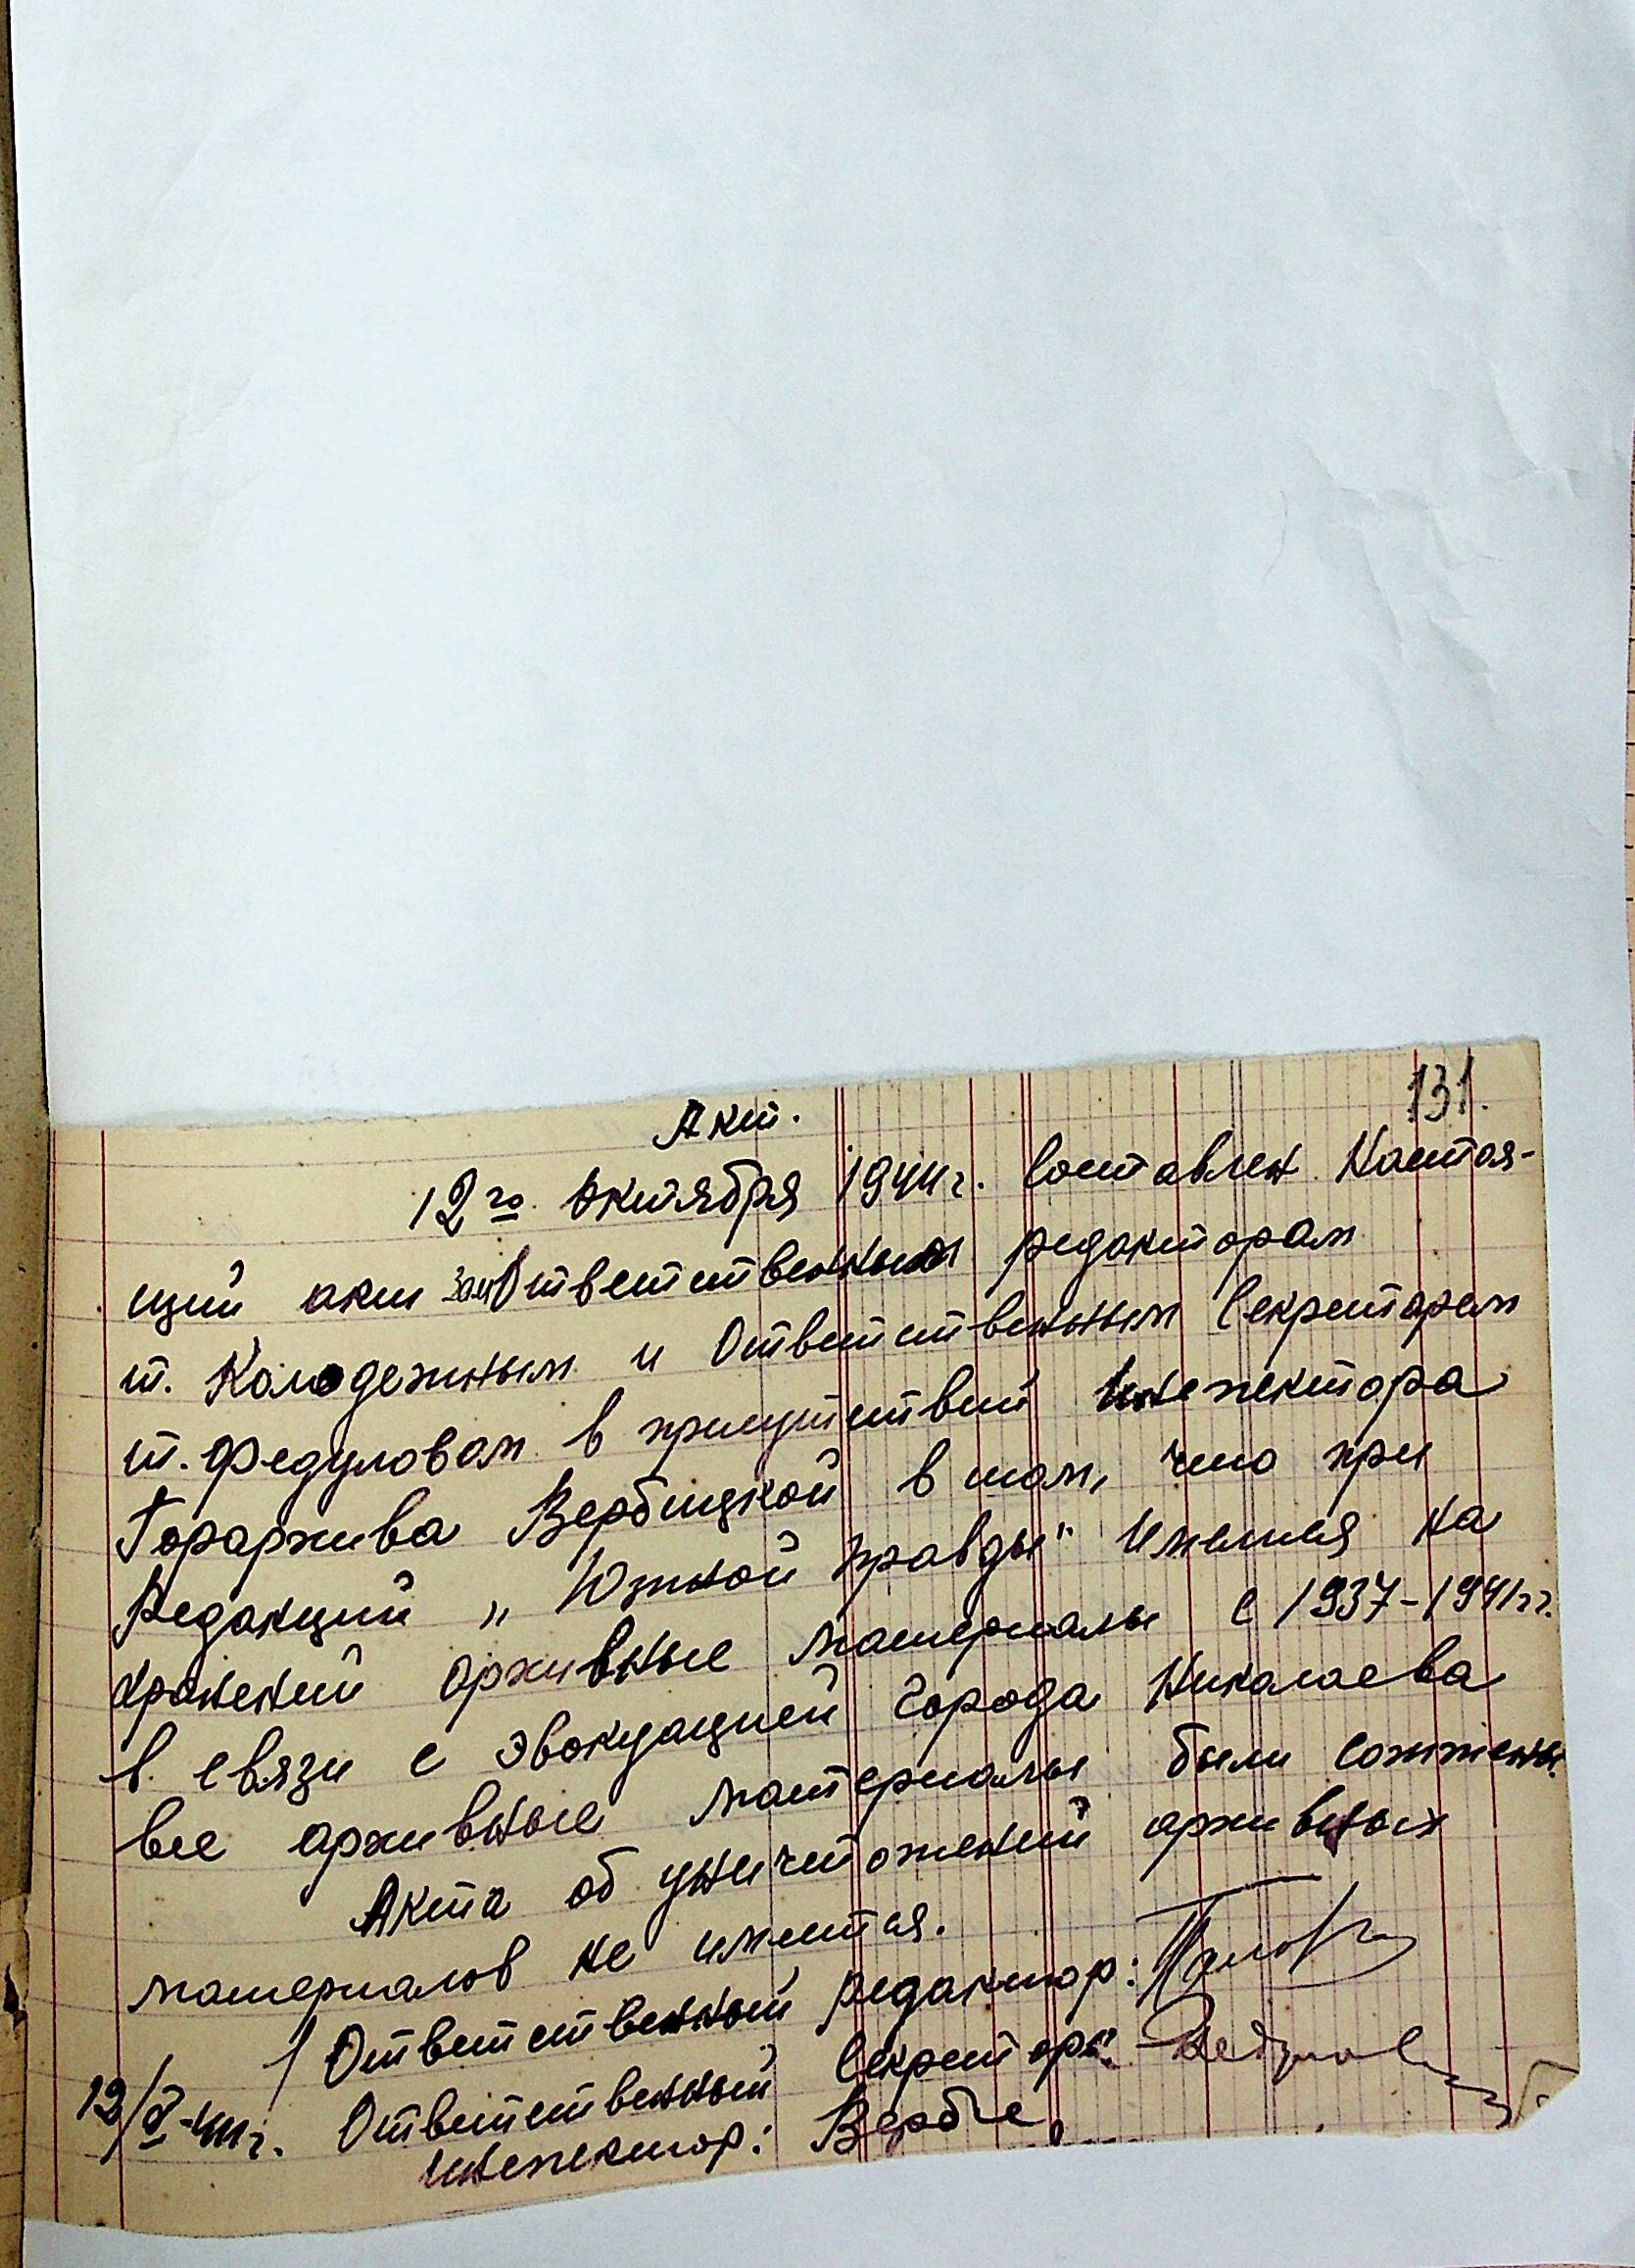 131.
Акт.
12го Октября 1944г. Составлен Настоя-
щий акт зам Ответственным редакторам
т. Колодежным и Ответственным Секретарем
т. Федуловам в присутствий Инспектора
Горархива Вербицкой в том, что при
Редакций „Южной правды" Имелися на
хранений архивные материалы с 1937-1941гг.
в связи с эвокуацией города Никалаева
все архивные материалы были сожжены.
Акта об уничтожений архивных
материалов не имеется.
Ответственный редактор:
12/X-44г. Ответственный Секретарь:
Инспектор: